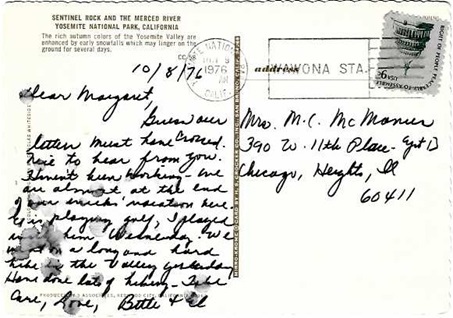 SENTINEL ROCK AND THE MERCED RIVER
YOSEMITE NATIONAL PARK, CALIFORNIA
The rich autumn colors of the Yosemite Valley are
enhanced by early snowfalls which may linger on the
ground for several days.
10/8/76
Dear Margaret,
Guess our
letters must have crossed.
Nice to hear from you.
Haven't been working - we
are almost at the end
of our week's vacation here.
is playing golf, I played
him Wednesday. We
went on a long and hard
hike in the Valley yesterday
Have done lots of hiking - Take
Care, Love, Bette & El
NATIONAL
1976
CALIF.
address
WAWONA STA.
RIGHT OF PEOPLE PEACEABLY
USA 9c
Mrs. M.C. McManus
390 W. 11th Place - Apt D
Chicago, Heights, Il
60411